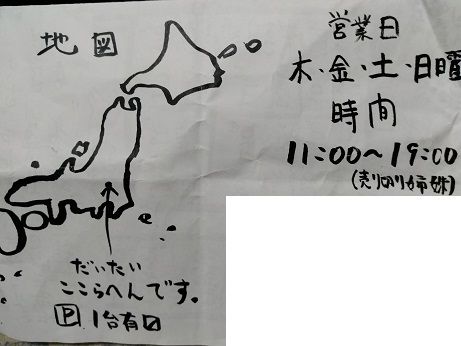 地図
営業日
木・金・土・日曜
時間
11:00〜19:00
(売り切り姉妹)
だいたい
ここらへんです。
P 1台有